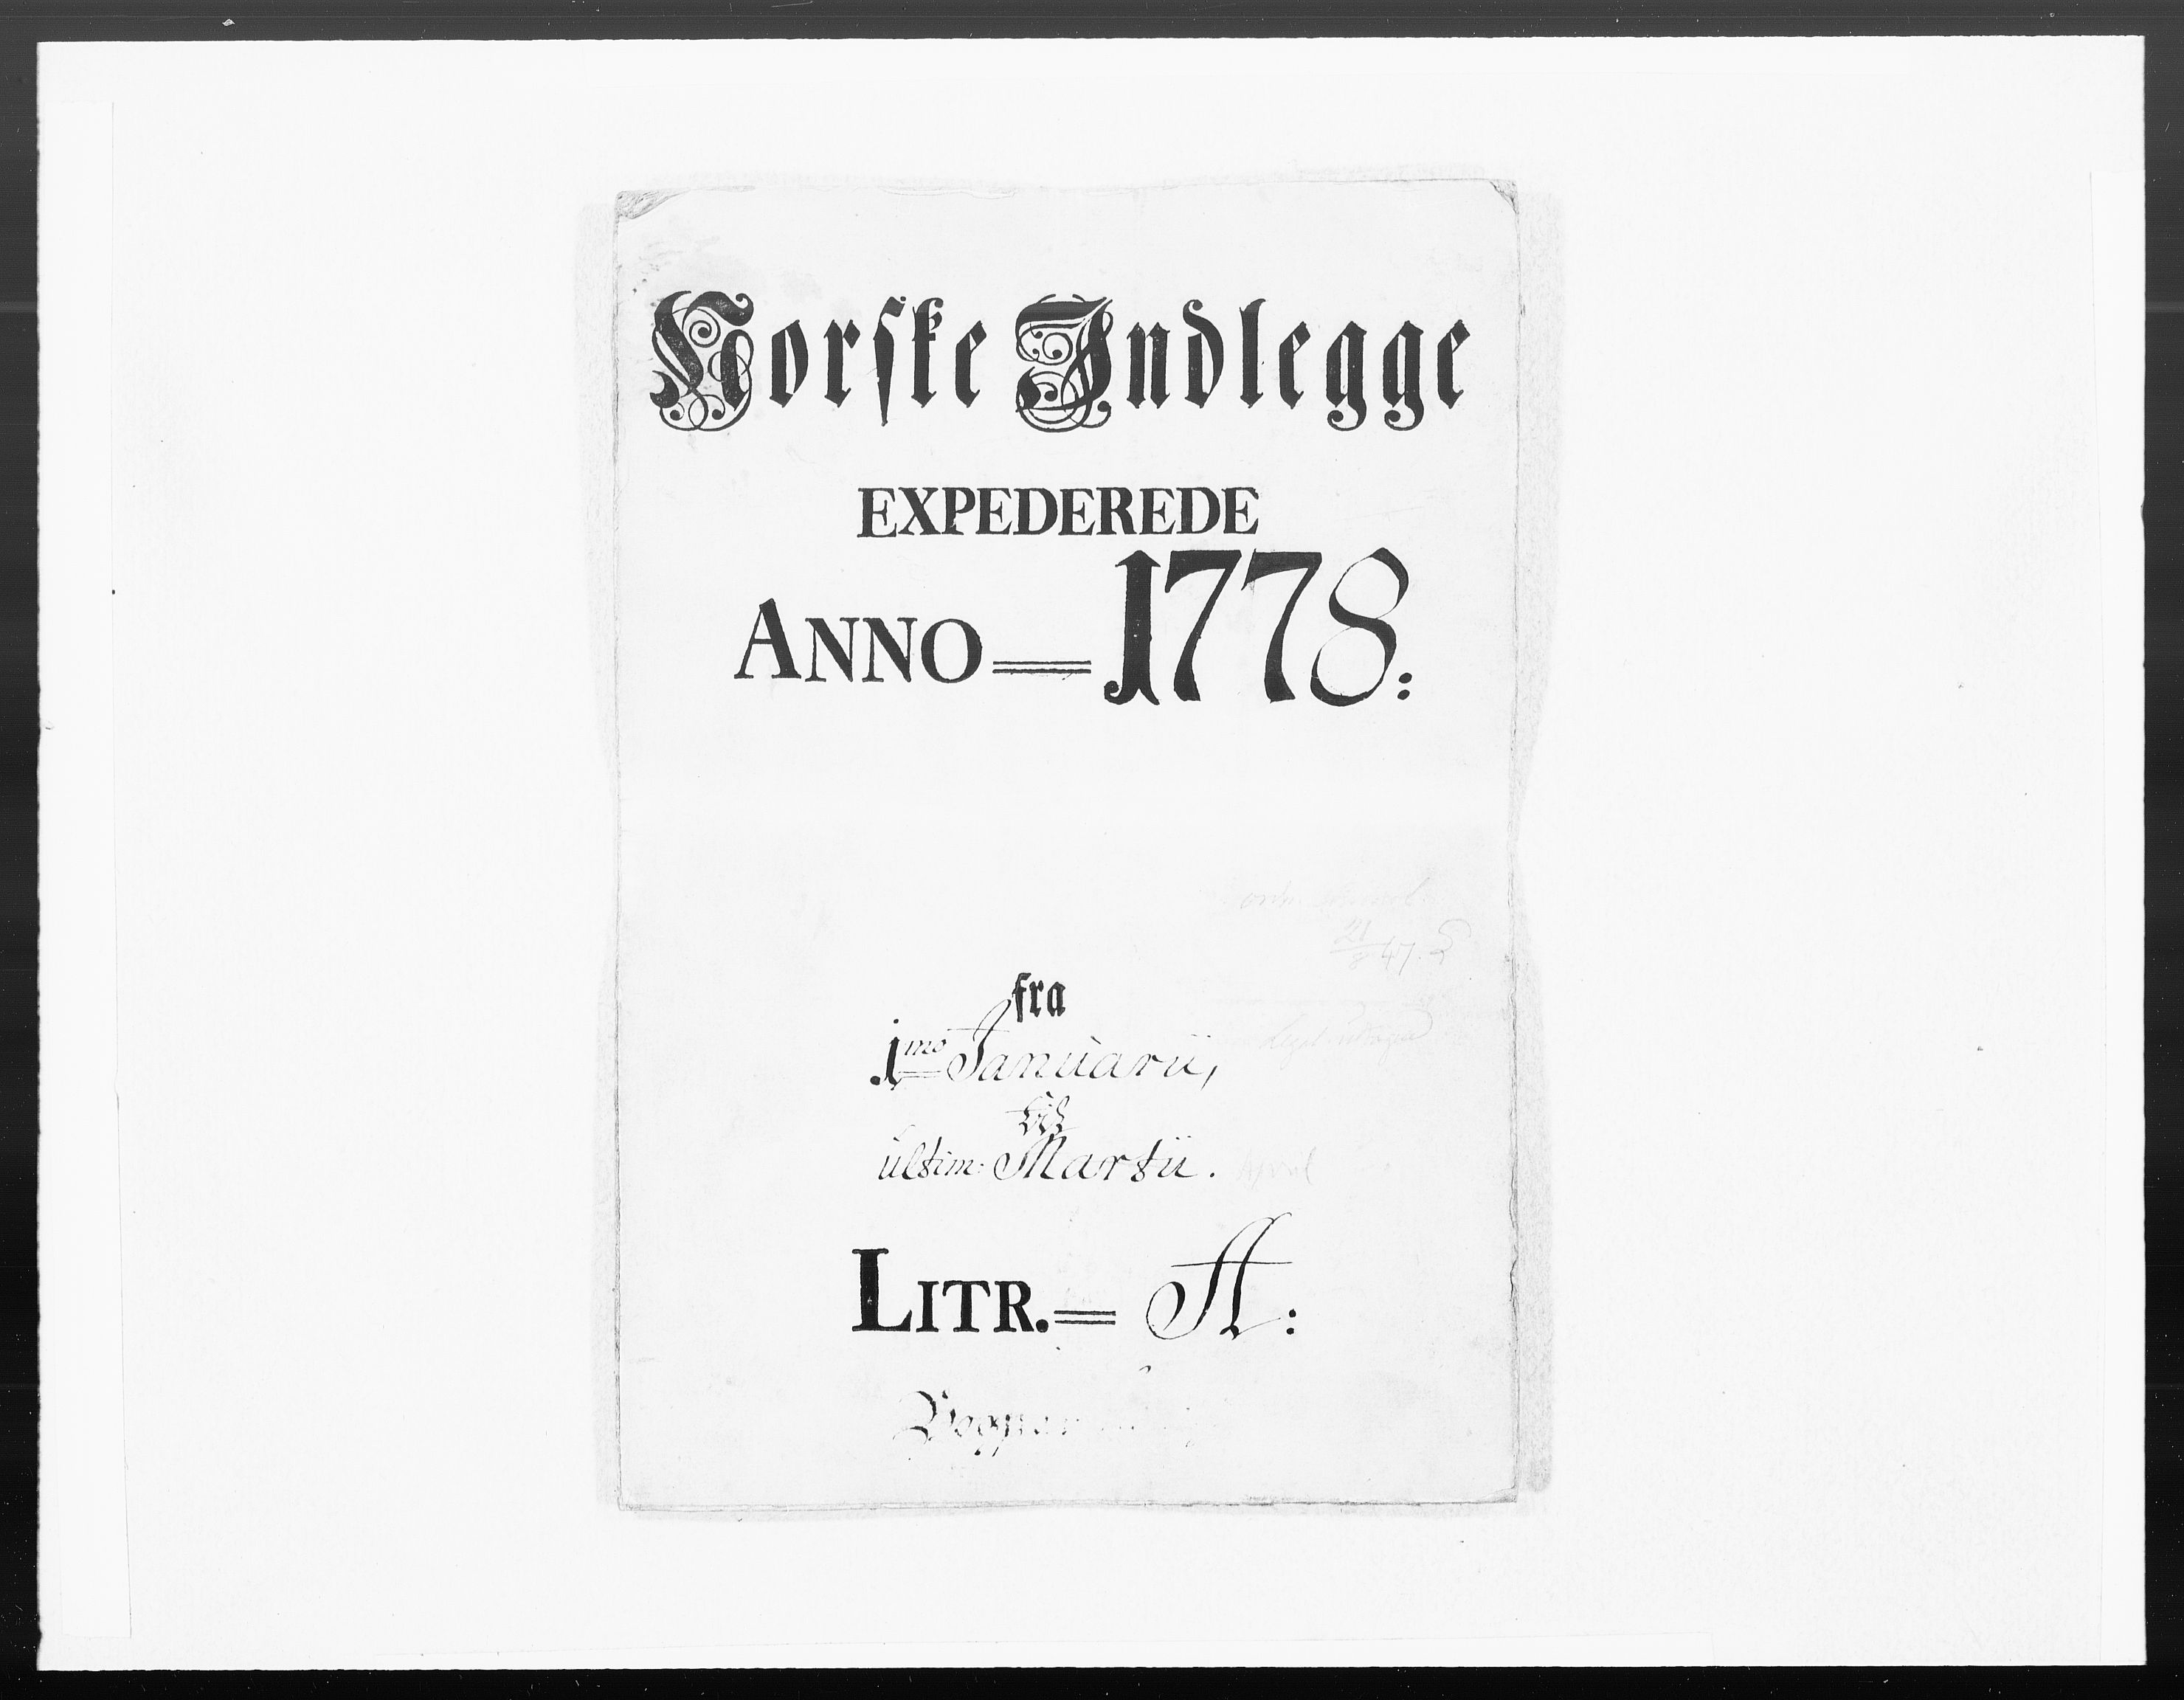 Norske Indlegge
EXPEDEREDE
ANNO = 1778:
fra
1mo Januarii,
til
ultim: Martii. April
LITR. = A: